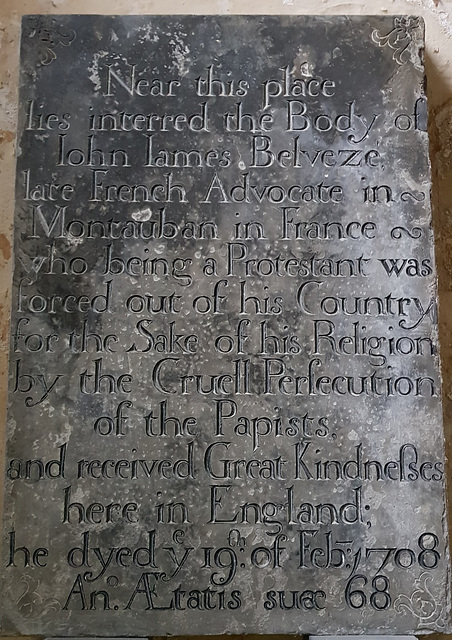 Near this place
lies interred the Body of
Iohn Iames Belveze,
late French Advocate in ~
Montauban in France ~
who being a Protestant was
forced out of his Country
for the Sake of his Religion
by the Cruell Perſecution
of the Papists.
and received Great Kindneſses
here in England;
he dyed yᵉ 19ᵗʰ: of Febʳʸ: 1708
Anº. Ætatis suæ 68